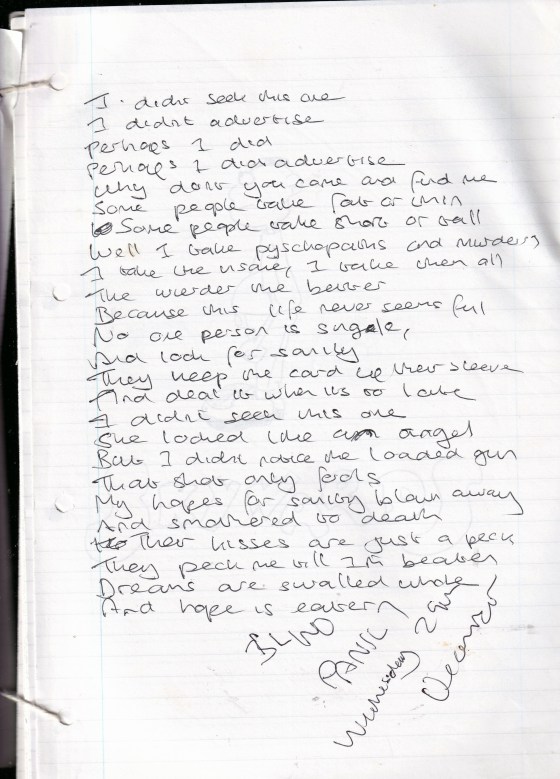 I didnt seek this one
I didnt advertise
perhaps I did
Perhaps I did advertise
Why dont you come and find me
Some people take fat or thin
Some people take short or tall
Well I take pyschopaths and murders
I take the insane, I take them all
The wierder the better
Because this life never seems full
No one person is single,
And look for sanity
They keep the card up their sleeve
And deal it when its to late
I didnt seek this one
She looked like an angel
But I didnt notice the loaded gun
That shot only fools
My hopes for sanity blown away
And smothered to death
Their kisses are just a peck
They peck me till Im beaten
Dreams are swalled whole
And hope is eaten
BLIND
PANIC
Wednesday 2am
December